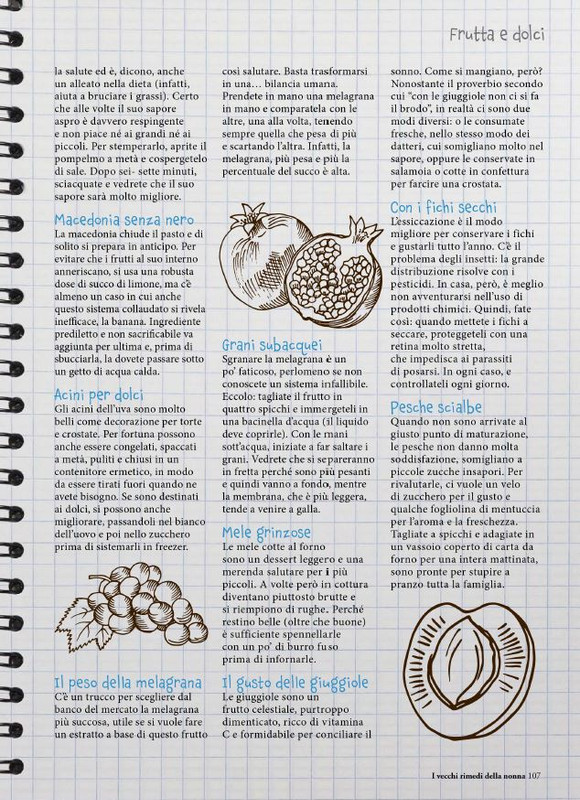 Frutta e dolci
la salute ed è, dicono, anche
un alleato nella dieta (infatti,
aiuta a bruciare i grassi). Certo
che alle volte il suo sapore
aspro è davvero respingente
e non piace né ai grandi né ai
piccoli. Per stemperarlo, aprite il
pompelmo a metà e cospergetelo
di sale. Dopo sei- sette minuti,
sciacquate e vedrete che il suo
sapore sarà molto migliore.
Macedonia senza nero
La macedonia chiude il pasto e di
solito si prepara in anticipo. Per
evitare che i frutti al suo interno
anneriscano, si usa una robusta
dose di succo di limone, ma c'è
almeno un caso in cui anche
questo sistema collaudato si rivela
inefficace, la banana. Ingrediente
prediletto e non sacrificabile va
aggiunta per ultima e, prima di
sbucciarla, la dovete passare sotto
un getto di acqua calda.
Acini per dolci
Gli acini dell'uva sono molto
belli come decorazione per torte
e crostate. Per fortuna possono
anche essere congelati, spaccati
a metà, puliti e chiusi in un
contenitore ermetico, in modo
da essere tirati fuori quando ne
avete bisogno. Se sono destinati
ai dolci, si possono anche
migliorare, passandoli nel bianco
dell'uovo e poi nello zucchero
prima di sistemarli in freezer.
Il peso della melagrana
C'è un trucco per scegliere dal
banco del mercato la melagrana
più succosa, utile se si vuole fare
un estratto a base di questo frutto
così salutare. Basta trasformarsi
in una... bilancia umana.
Prendete in mano una melagrana
in mano e comparatela con le
altre, una alla volta, tenendo
sempre quella che pesa di più
e scartando l'altra. Infatti, la
melagrana, più pesa e più la
percentuale del succo è alta.
Grani subacquei
Sgranare la melagrana è un
po' faticoso, perlomeno se non
conoscete un sistema infallibile.
Eccolo: tagliate il frutto in
quattro spicchi e immergeteli in
una bacinella d'acqua (il liquido
deve coprirle). Con le mani
sott'acqua, iniziate a far saltare i
grani. Vedrete che si separeranno
in fretta perché sono più pesanti
e quindi vanno a fondo, mentre
la membrana, che è più leggera,
tende a venire a galla.
Mele grinzose
Le mele cotte al forno
sono un dessert leggero e una
merenda salutare per i più
piccoli. A volte però in cottura
diventano piuttosto brutte e
si riempiono di rughe. Perché
restino belle (oltre che buone)
è sufficiente spennellarle
con un po' di burro fuso
prima di infornarle.
Il gusto delle giuggiole
Le giuggiole sono un
frutto celestiale, purtroppo
dimenticato, ricco di vitamina
C e formidabile per conciliare il
sonno. Come si mangiano, però?
Nonostante il proverbio secondo
cui "con le giuggiole non ci si fa
il brodo", in realtà ci sono due
modi diversi: o le consumate
fresche, nello stesso modo dei
datteri, cui somigliano molto nel
sapore, oppure le conservate in
salamoia o cotte in confettura
per farcire una crostata.
Con i fichi secchi
L'essiccazione è il modo
migliore per conservare i fichi
e gustarli tutto l'anno. C'è il
problema degli insetti: la grande
distribuzione risolve con i
pesticidi. In casa, però, è meglio
non avventurarsi nell'uso di
prodotti chimici. Quindi, fate
così: quando mettete i fichi a
seccare, proteggeteli con una
retina molto stretta,
che impedisca ai parassiti
di posarsi. In ogni caso, e
controllateli ogni giorno.
Pesche scialbe
Quando non sono arrivate al
giusto punto di maturazione,
le pesche non danno molta
soddisfazione, somigliano a
piccole zucche insapori. Per
rivalutarle, ci vuole un velo
di zucchero per il gusto e
qualche fogliolina di mentuccia
per l'aroma e la freschezza.
Tagliate a spicchi e adagiate in
un vassoio coperto di carta da
forno per una intera mattinata,
sono pronte per stupire a
pranzo tutta la famiglia.
I vecchi rimedi della nonna 107